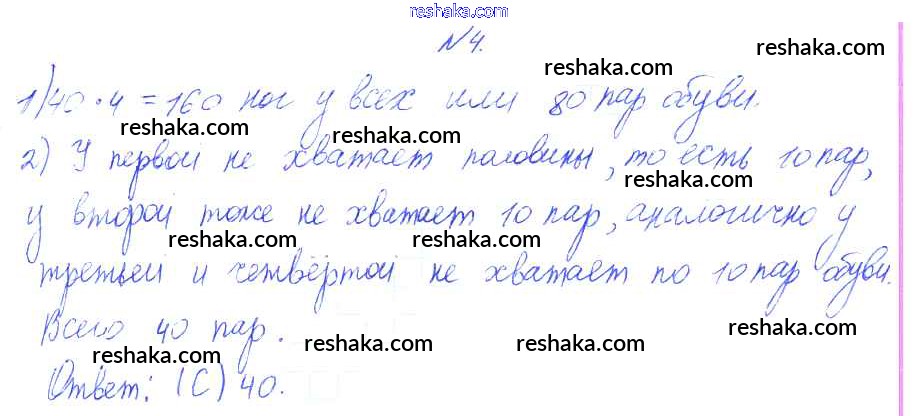 reshaka.com
№4.
reshaka.com reshaka.com
1) 40 · 4 = 160 ног у всех или 80 пар обуви.
reshaka.com reshaka.com
2) У первой не хватает половины, то есть 10 пар,
reshaka.com
у второй тоже не хватает 10 пар, аналогично у
reshaka.com reshaka.com
третьей и четвёртой не хватает по 10 пар обуви.
Всего 40 пар.
reshaka.com reshaka.com reshaka.com
Ответ: (C) 40.
reshaka.com reshaka.com